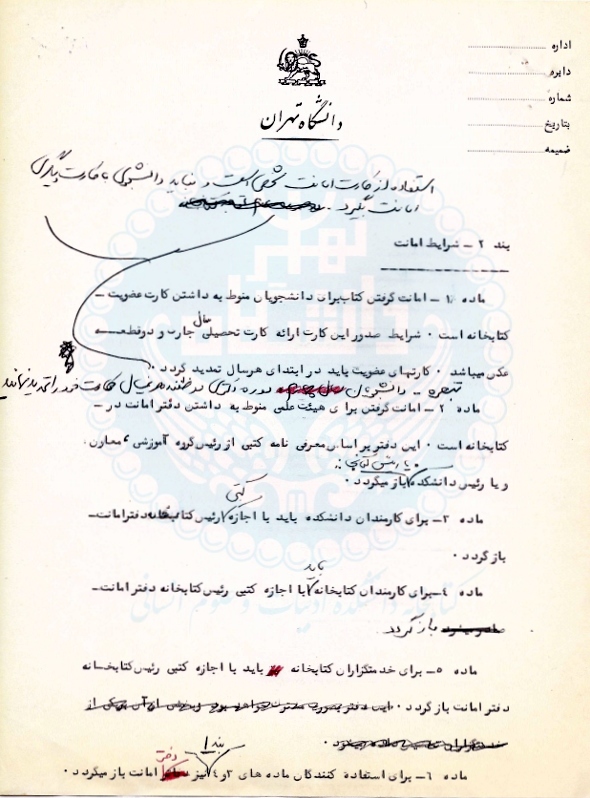 اداره
دایره
شماره
بتاریخ
ضمیمه
دانشگاه تهران
استفاده از کارت امانت شخصی است و نباید دانشجوی با کارت دیگری
امانت بگیرد .
بند ۲ - شرایط امانت
ماده ۱ - امانت گرفتن کتاب برای دانشجویان منوط به داشتن کارت عضویت -
کتابخانه است ۰ شرایط صدور این کارت ارائه کارت تحصیلی سال جاری و دو قطعه
عکس میباشد ۰ کارتهای عضویت باید در ابتدای هر سال تمدید گردد ۰
تبصره - دانشجویان دوره دکتری موظفند هر سال کارت خود را تمدید نمایند
ماده ۲ - امانت گرفتن برای هیئت علمی منوط به داشتن دفتر امانت در -
کتابخانه است ۰ این دفتر بر اساس معرفی نامه کتبی از رئیس گروه آموزشی ، معاون ،
و یا رئیس دانشکده باز میگردد ۰
ماده ۳- برای کارمندان دانشکده باید با اجازه کتبی رئیس کتابخانه دفتر امانت -
باز گردد ۰
ماده ۴- برای کارمندان کتابخانه باید با اجازه کتبی رئیس کتابخانه دفتر امانت -
باز گردد
ماده ۵- برای خدمتگزاران کتابخانه باید با اجازه کتبی رئیس کتابخانه
دفتر امانت باز گردد ۰
ماده ۶- برای استفاده کنندگان ماده های ۳ و ۴ بند ۱ نیز دفتر امانت باز میگردد ۰